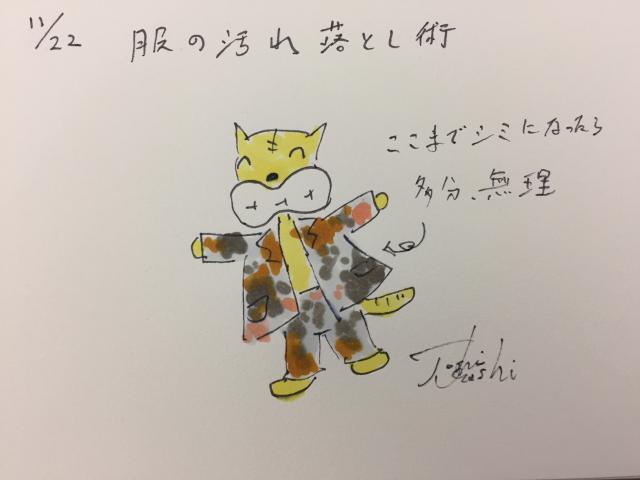 11/22 服の汚れ落とし術
ここまでシミになったら
多分、無理